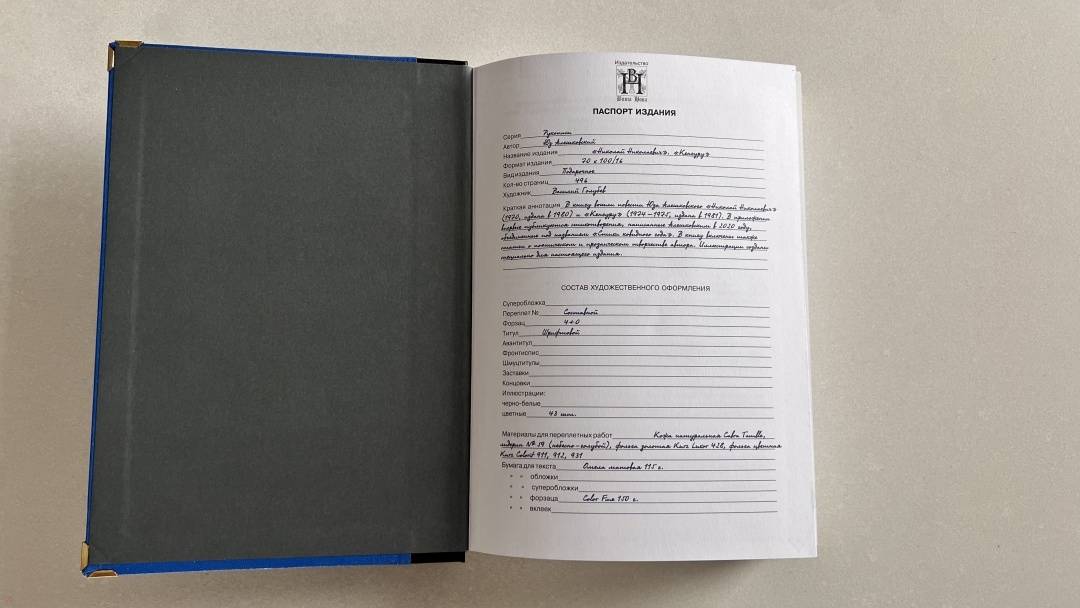 Издательство
ВН
Вита Нова
ПАСПОРТ ИЗДАНИЯ
Серия Рукописи
Автор Юз Алешковский
Название издания «Николай Николаевич». «Кенгуру»
Формат издания 70 х 100/16
Вид издания Подарочное
Кол-во страниц 496
Художник Василий Голубев
Краткая аннотация В книгу вошли повести Юза Алешковского «Николай Николаевич»
(1970, издана в 1980) и «Кенгуру» (1974–1975, издана в 1981). В приложении
впервые публикуются стихотворения, написанные Алешковским в 2020 году,
объединенные под названием «Стихи ковидного года». В книгу включены также
статьи о поэтическом и прозаическом творчестве автора. Иллюстрации созданы
специально для настоящего издания.
СОСТАВ ХУДОЖЕСТВЕННОГО ОФОРМЛЕНИЯ
Суперобложка
Переплет № Составной
Форзац 4+0
Титул Шрифтовой
Авантитул
Фронтиспис
Шмуцтитулы
Заставки
Концовки
Иллюстрации:
черно-белые
цветные 43 илл.
Материалы для переплетных работ Кожа натуральная Cabra Tumble,
ледерин № 19 (небесно-голубой), фольга золотая Kurz Luxor 428, фольга цветная
Kurz Colorit 911, 912, 931
Бумага для текста Омела матовая 115 г.
" " обложки
" " суперобложки
" " форзаца Color Fine 150 г.
" " вклеек